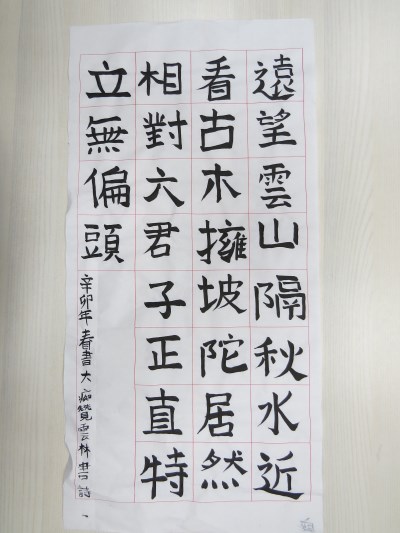 遠望雲山隔秋水近
看古木擁坡陀居然
相對六君子正直特
立無偏頭
辛卯年春書大癡贊雲林書詩一